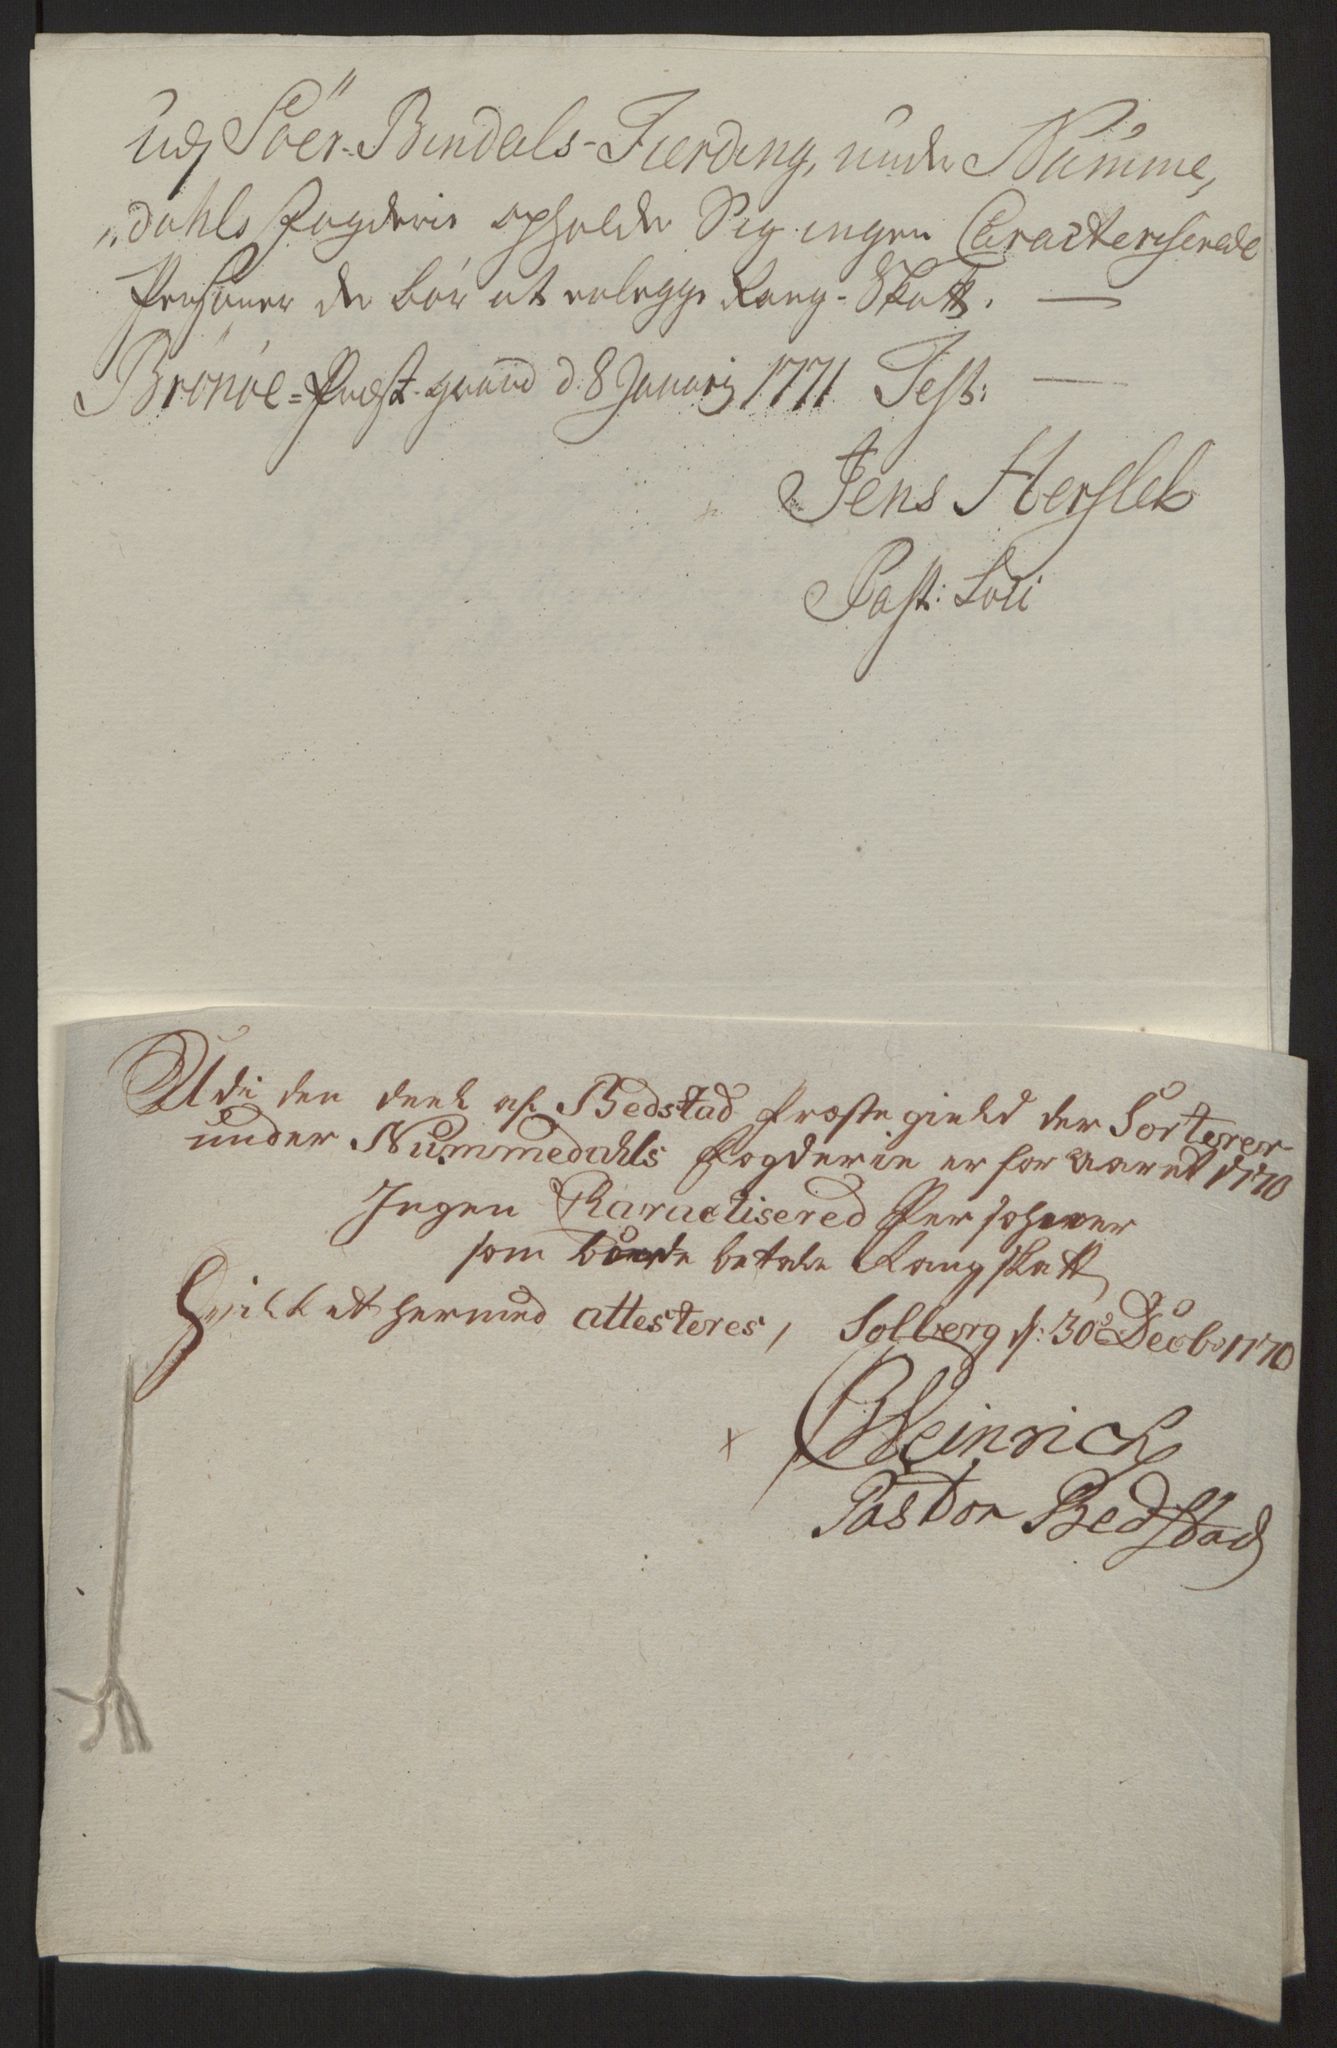 Udj Söer-Bindals-Fierding, under Numme,
„dahls Fogderie opholder Sig ingen Caracteriserede
Personer der bör at erlegge Rang-Skatt. —
Brönöe=Præst-gaard d: 8 Januarij 1771 Test: —
Jens Hersleb
Past: Loci
Udi den deel af Bedstad Præste gield der Sorterer
under Nummedahls Fogderie er for aaret 1770
Ingen Karactisered Persohner
som burde betale Rang skatt
Hvilket hermed attesteres, Solberg d: 30 Decbr 1770
Heinrich
Pastor Bedstad